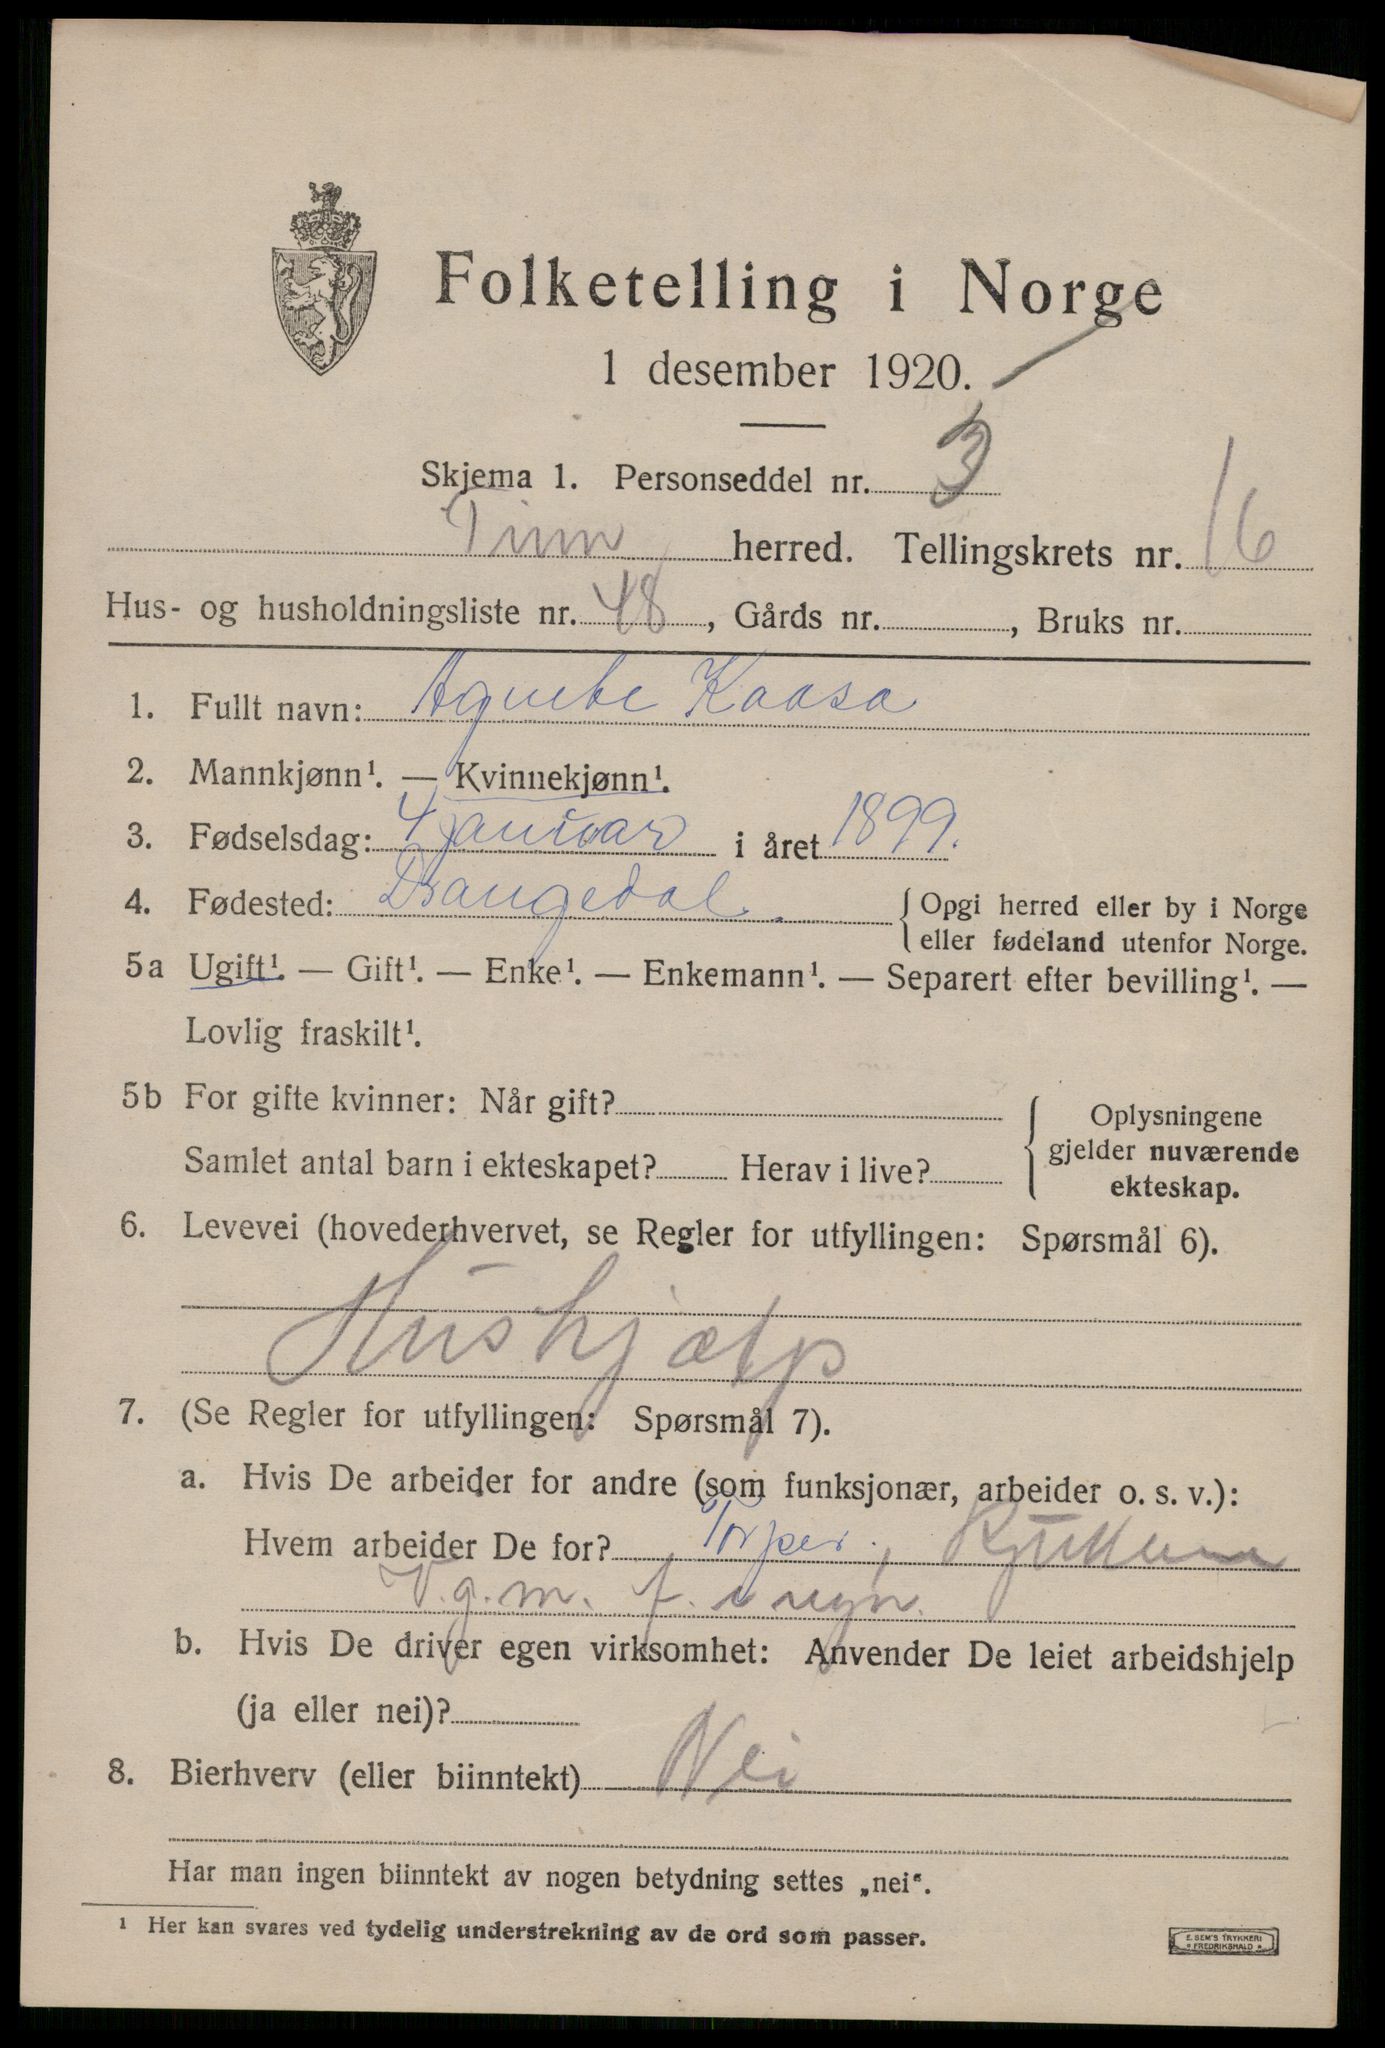 Folketelling i Norge
1 desember 1920.
Skjema 1. Personseddel nr. 3
Tinn herred. Tellingskrets nr. 16
Hus- og husholdningsliste nr. 48, Gårds nr. , Bruks nr.
1. Fullt navn: Agnete Kaasa
2. Mannkjønn¹. — Kvinnekjønn¹.
3. Fødselsdag: 4 januar i året 1899.
4. Fødested: Drangedal. { Opgi herred eller by i Norge
eller fødeland utenfor Norge.
5a Ugift¹. — Gift¹. — Enke¹. — Enkemann¹. — Separert efter bevilling¹. —
Lovlig fraskilt¹.
5b For gifte kvinner: Når gift?
Samlet antal barn i ekteskapet? Herav i live?
{ Oplysningene
gjelder nuværende
ekteskap.
6. Levevei (hovederhvervet, se Regler for utfyllingen: Spørsmål 6).
Hushjælp
7. (Se Regler for utfyllingen: Spørsmål 7).
a. Hvis De arbeider for andre (som funksjonær, arbeider o. s. v.):
Hvem arbeider De for?
V.g.m.
b. Hvis De driver egen virksomhet: Anvender De leiet arbeidshjelp
(ja eller nei)?
8. Bierhverv (eller biinntekt) Nei
Har man ingen biinntekt av nogen betydning settes „nei“.
¹ Her kan svares ved tydelig understrekning av de ord som passer.
E. SEM'S TRYKKERI
* FREDRIKSHALD *